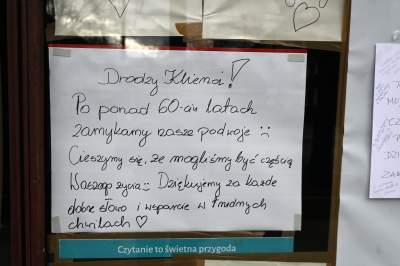 Drodzy Klienci!
Po ponad 60-ciu latach
zamykamy nasze podwoje :(
Cieszymy się, że mogliśmy być częścią
Waszego życia :) Dziękujemy za każde
dobre słowo i wsparcie w trudnych
chwilach ♡
Czytanie to świetna przygoda